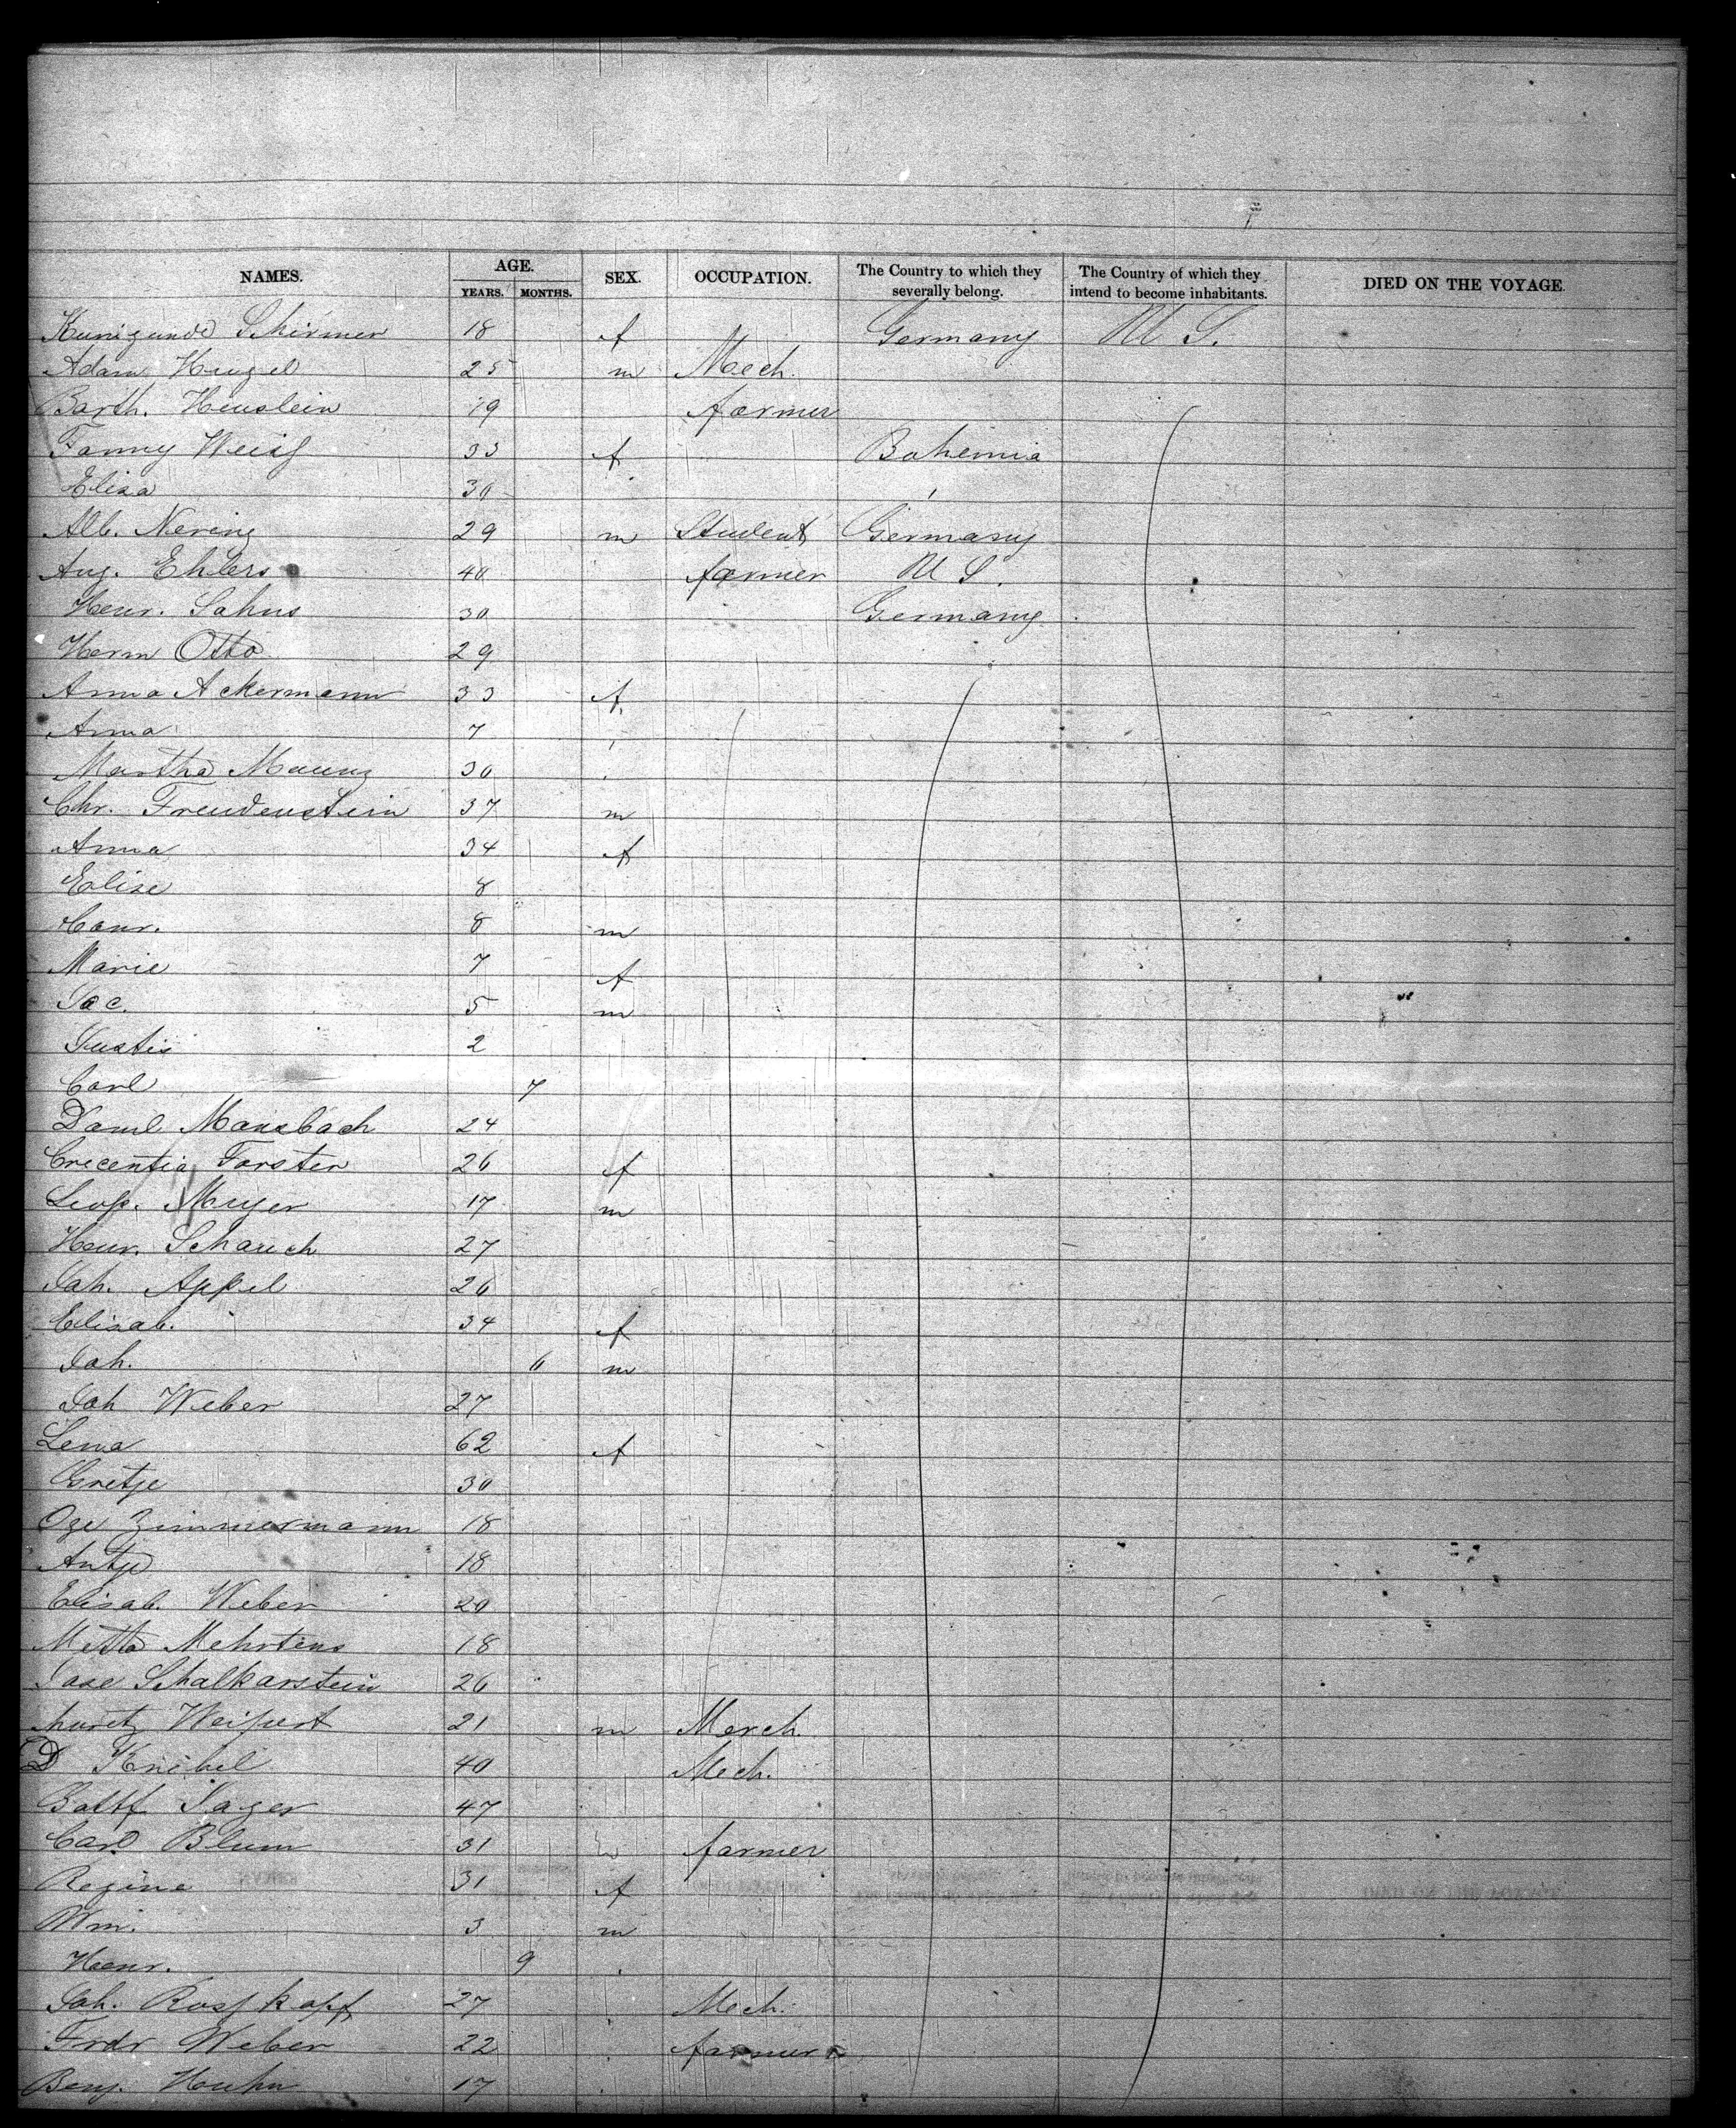 NAMES. AGE. SEX. OCCUPATION. The Country to which they severally belong. The Country of which they intend to become inhabitants. DIED ON THE VOYAGE.
YEARS. MONTHS.
Kunigunde Schirmer 18 f Germany U S.
Adam Hugel 25 m Mech.
Barth. Heuslein 19 farmer
Fanny Weiss 33 f Bohemia
Elisa 30
Alb. Nering 29 m Student Germany
Aug. Ehlers 40 farmer U S.
Henr. Sahns 30 Germany
Herm Otto 29
Anna Ackermann 33 f
Anna 7
Martha Maung 30
Chr. Freudenstein 37 m
Anna 34 f
Elise 8
Conr. 8 m
Marie 7 f
Jac. 5 m
Justis 2
Carl 7
Daml. Mansbach 24
Crecentia Forster 26 f
Leop. Meyer 17 m
Henr. Schauch 27
Joh. Appel 26
Elisab. 34 f
Joh. 6 m
Joh Weber 27
Lena 62 f
Gretje 30
Oze Zimmermann 18
Antje 18
Elisab. Weber 20
Metta Mehrtens 18
Schalkarstein 26
Weifert 21 m Merch.
D Knibel 40 Mech.
Jager 47
Carl Blum 31 farmer
Regine 31 f
Wm. 3 m
Henr. 9
Joh. Rosskopf 27 Mech.
Fredr Weber 22 farmer
Benj. Huhn 17